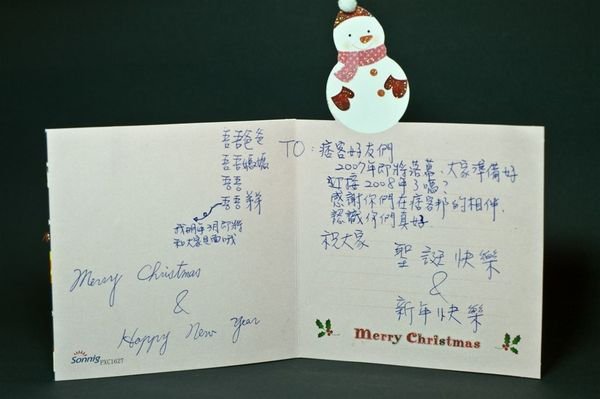 吾吾爸爸
吾吾媽媽
吾吾
吾吾弟弟
我明年3月即將
和大家見面哦
Merry Christmas
&
Happy New Year
Sonnig PXC162T
TO:痞客好友們
2007年即將落幕、大家準備好
迎接2008年了嗎?
感謝你們在痞客邦的相伴.
認識你們真好
祝大家
聖誕快樂
&
新年快樂
Merry Christmas